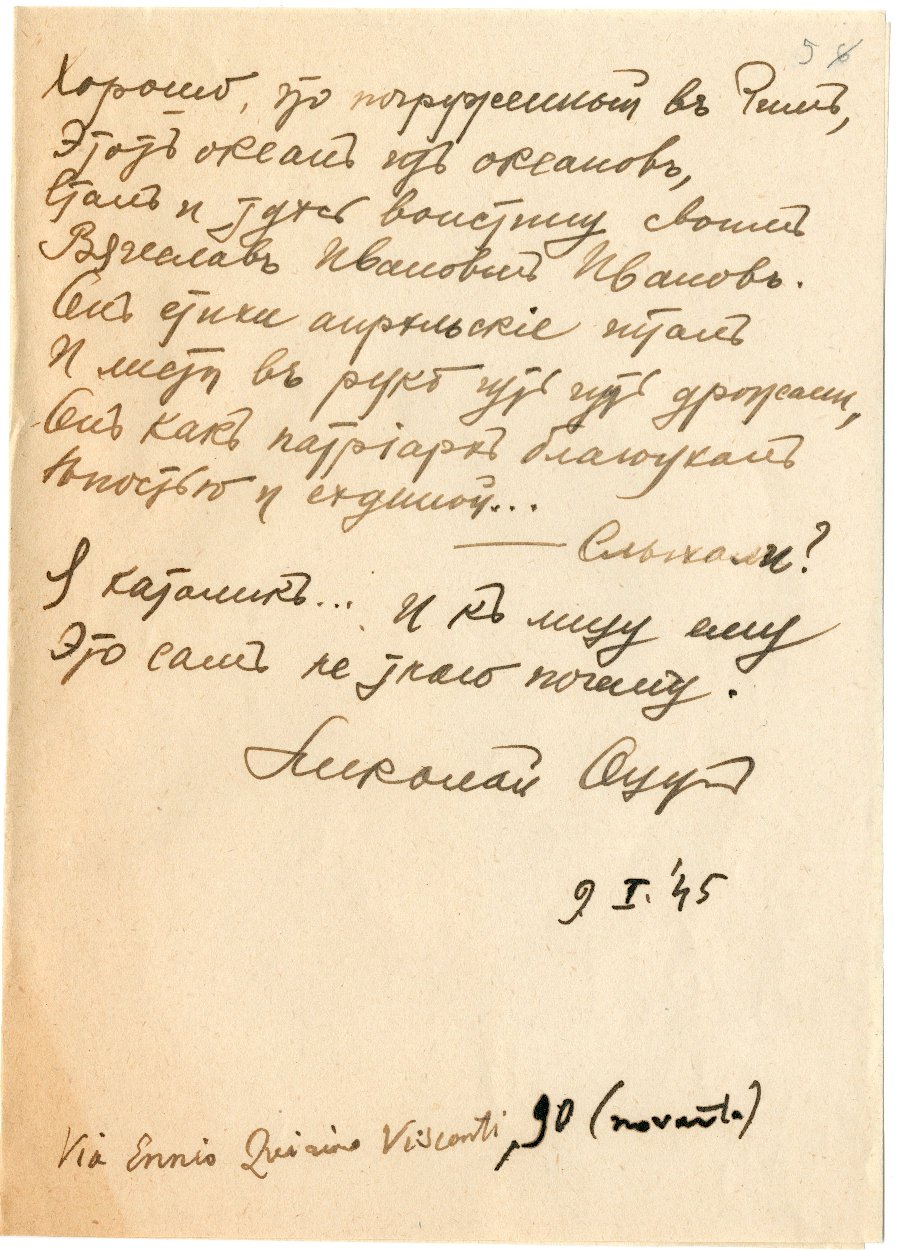 5 6
Хорошо, что погруженный въ Римъ,
Этотъ океанъ изъ океановъ,
Сталъ и здѣсь воистину своимъ
Вячеславъ Ивановичъ Ивановъ.
Онъ стихи апрѣльскіе читалъ
И листы въ рукѣ чуть чуть дрожали,
Онъ какъ патріархъ благоухалъ
Юностью и сѣдиной...
— Слыхали?
Я католикъ... И къ лицу ему
Это самъ не знаю почему.
Николай Оцупъ
9 I. '45
Via Ennio Quirino Visconti, 90 (novanta)